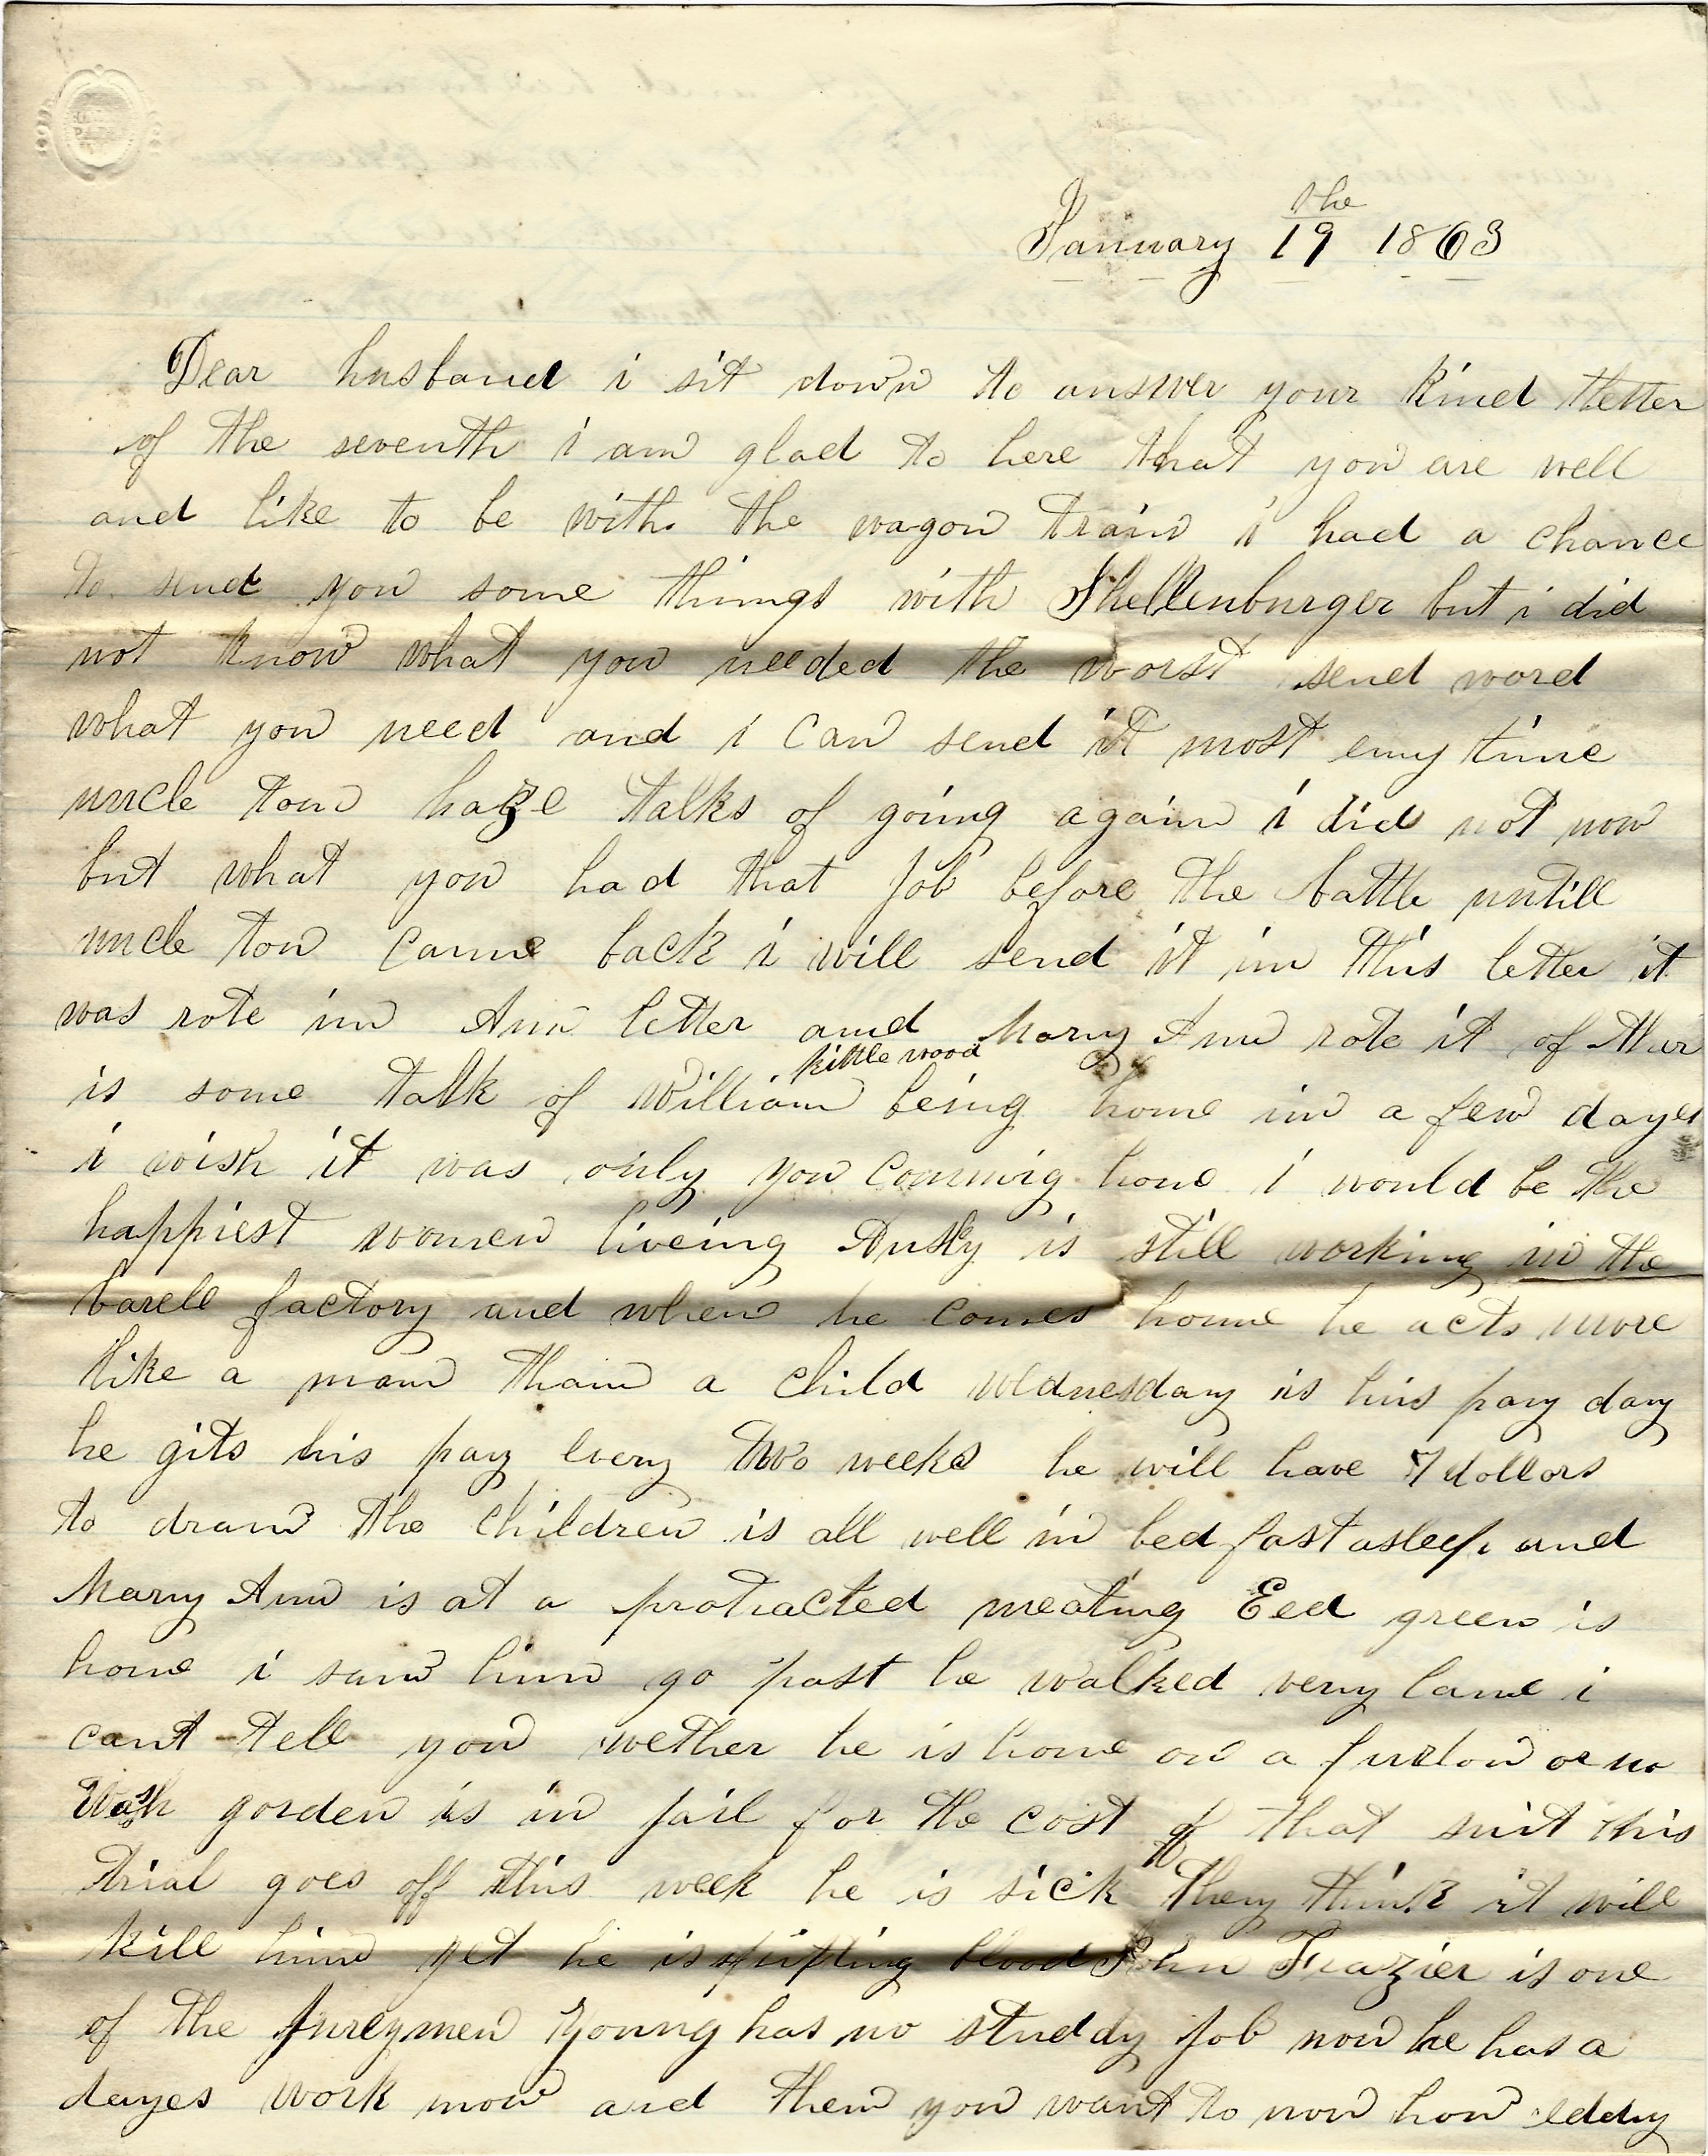 January the 19 1863
Dear husband i sit down to answer your kind letter
of the seventh i am glad to here that you are well
and like to be with the wagon train i had a chance
to send you some things with Shellenburger but i did
not know what you needed the worst send word
what you need and i can send it most eny time
uncle tom haze talks of going again i did not now
but what you had that job before the battle untill
uncle tom came back i will send it in this letter it
was rote in Ann letter and Mary Ann rote it of ther
kittle wood
is some talk of William being home in a few dayes
i wish it was only you comming home i would be the
happiest women liveing Ausky is still working in the
barell factory and when he comes home he acts more
like a man than a child wednesday is his pay day
he gits his pay every two weeks he will have 7 dollors
to draw the children is all well in bed fast asleep and
Mary Ann is at a protracted meating Eed green is
home i saw him go past he walked very lame i
cant tell you wether he is home on a furlow or no
Wash gorden is in jail for the cost of that suit this
trial goes off this week he is sick they think it will
kill him yet he is spitting blood John Frazier is one
of the jureymen Young has no studdy job now he has a
dayes work now and then you want to now how eddy